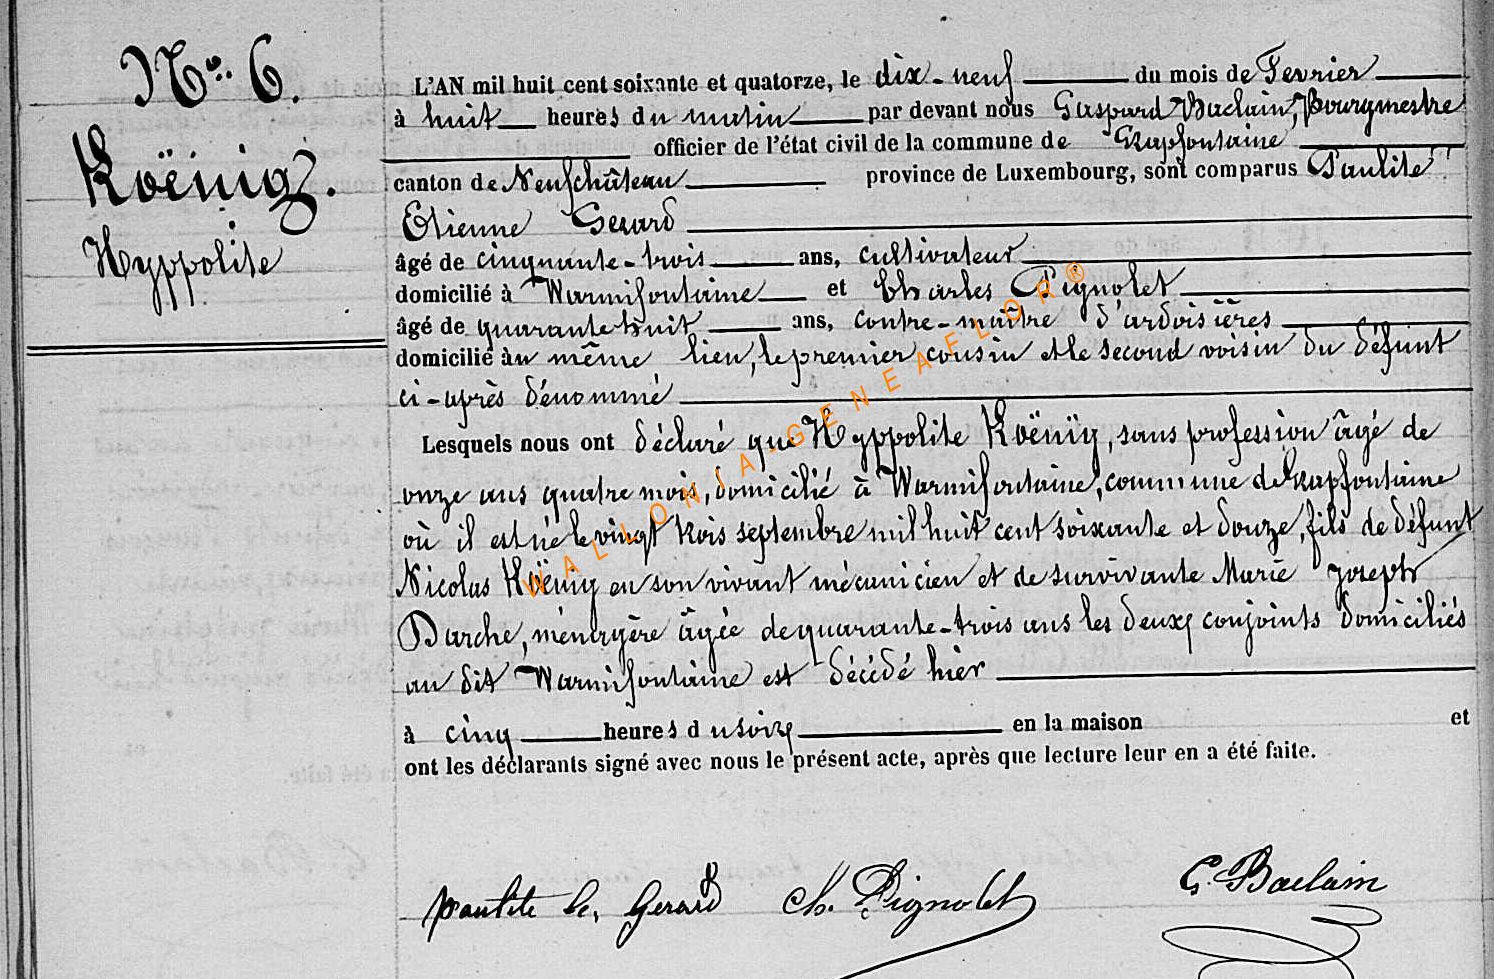 N.º 6.
Koënig.
Hyppolite
L'AN mil huit cent soixante et quatorze, le dix-neuf du mois de Fevrier
à huit heures du matin par devant nous Gaspard Baclain, Bourgmestre
officier de l'état civil de la commune de Grapfontaine
canton de Neufchâteau province de Luxembourg, sont comparus Paulite
Etienne Gerard
âgé de cinquante-trois ans, cultivateur
domicilié à Warmifontaine et Charles Pignolet
âgé de quarante huit ans, contre-maître d'ardoisières
domicilié au même lieu, le premier cousin et le second voisin du défunt
ci-après dénommé
Lesquels nous ont déclaré que Hyppolite Koënig, sans profession âgé de
onze ans quatre mois, domicilié à Warmifontaine, commune de Grapfontaine
où il est né le vingt trois septembre mil huit cent soixante et douze, fils de défunt
Nicolas Koënig en son vivant mécanicien et de survivante Marie Joseph
Darche, ménagère âgée de quarante-trois ans les deux conjoints domiciliés
au dit Warmifontaine est décédé hier
à cinq heures du soir en la maison et
ont les déclarants signé avec nous le présent acte, après que lecture leur en a été faite.
paulite E. Gerard Ch. Pignolet G. Baclain
WALLONIA-GENEAFLOR®